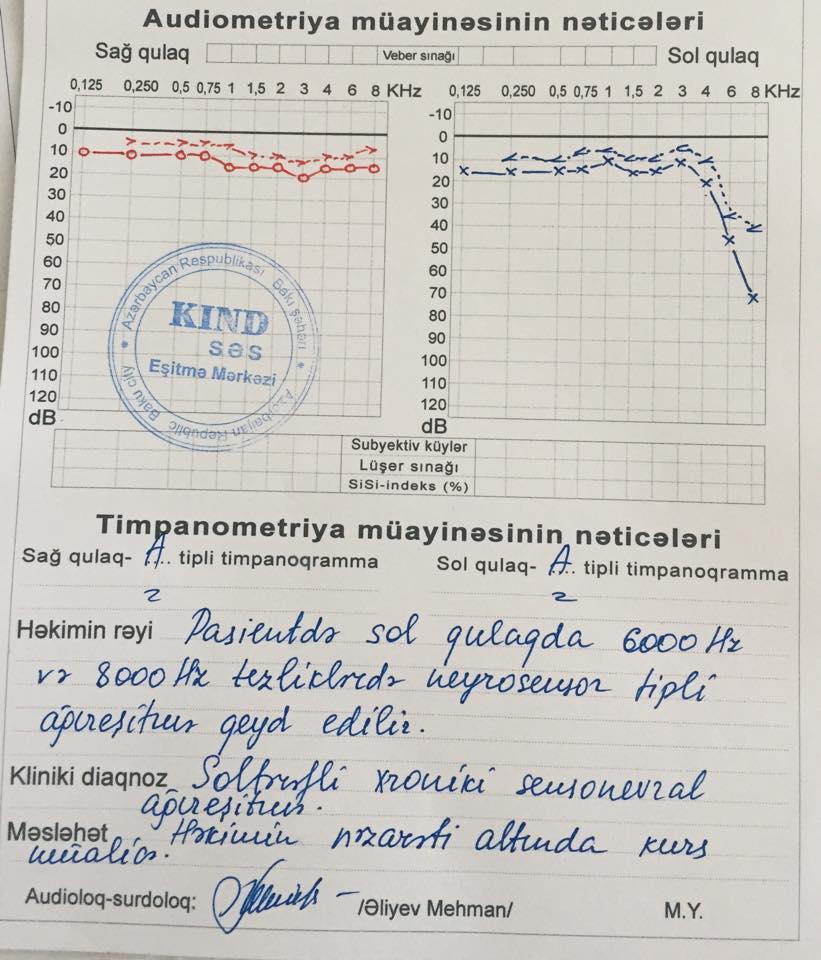 Audiometriya müayinəsinin nəticələri
Sağ qulaq Veber sınağı Sol qulaq
0,125 0,250 0,5 0,75 1 1,5 2 3 4 6 8 KHz
-10
0
10
20
30
40
50
60
70
80
90
100
110
120
dB
0,125 0,250 0,5 0,75 1 1,5 2 3 4 6 8 KHz
-10
0
10
20
30
40
50
60
70
80
90
100
110
120
dB
Azərbaycan Respublikası Bakı şəhəri
KIND
SƏS
Eşitmə Mərkəzi
Azerbaijan Republic Baku city
Subyektiv küylər
Lüşer sınağı
SiSi-indeks (%)
Timpanometriya müayinəsinin nəticələri
Sağ qulaq- A tipli timpanoqramma
Sol qulaq- A tipli timpanoqramma
Həkimin rəyi Pasientdə sol qulaqda 6000 Hz
və 8000 Hz tezliklərdə neyrosensor tipli
ağıreşitmə qeyd edilir.
Kliniki diaqnoz Soltərəfli xroniki sensonevral
ağıreşitmə.
Məsləhət Həkimin nəzarəti altında kurs
müalicə.
Audioloq-surdoloq: /Əliyev Mehman/ M.Y.